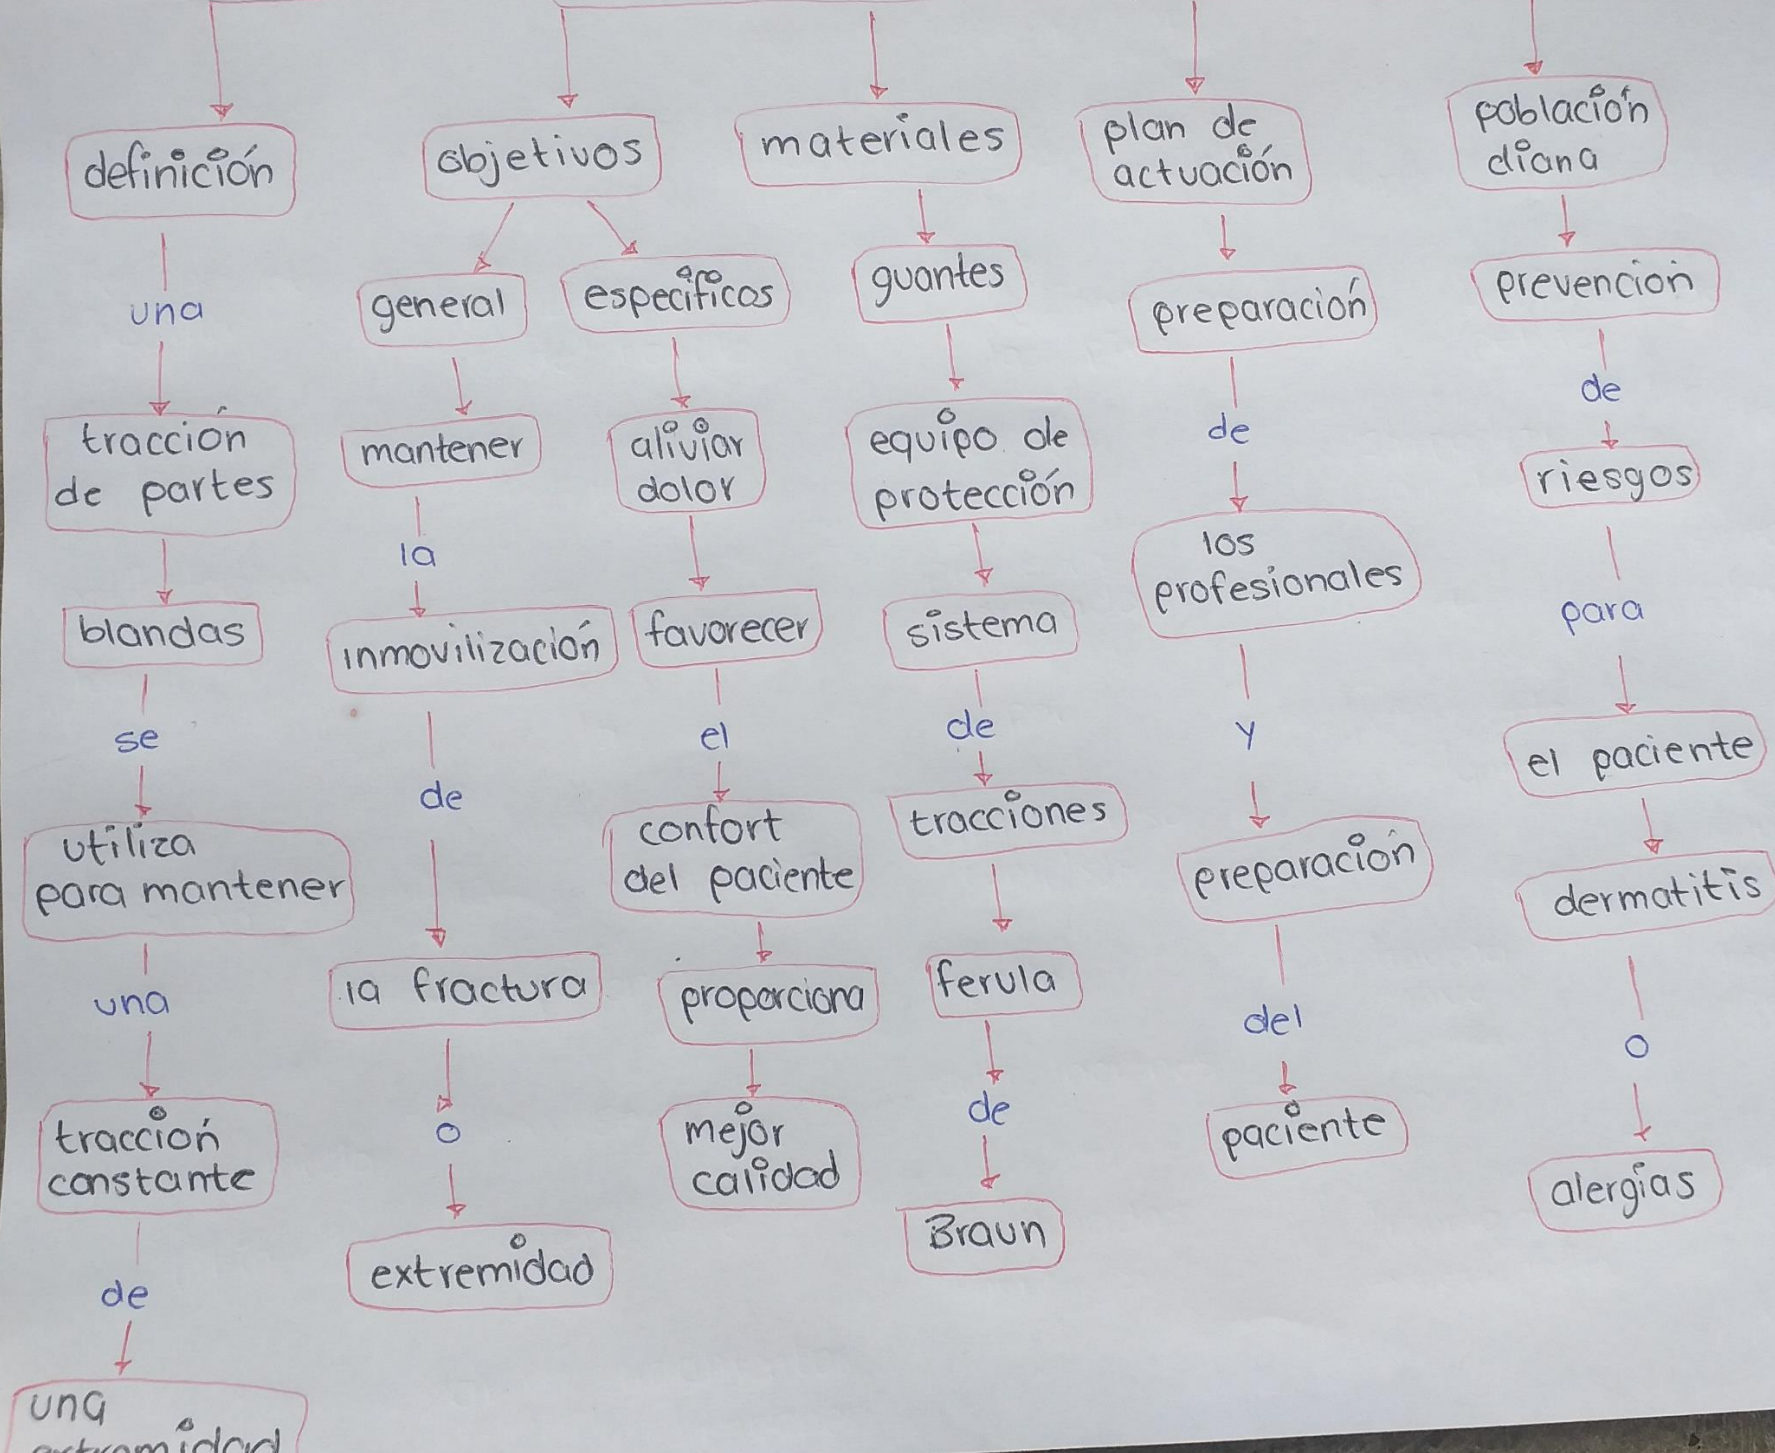 definición
una
tracción
de partes
blandas
se
utiliza
para mantener
una
tracción
constante
de
una
extremidad
objetivos
general
mantener
la
inmovilización
de
la fractura
o
extremidad
especificos
aliviar
dolor
favorecer
el
confort
del paciente
proporciona
mejor
calidad
materiales
guantes
equipo de
protección
sistema
de
tracciones
ferula
de
Braun
plan de
actuación
preparación
de
los
profesionales
y
preparación
del
paciente
población
diana
prevención
de
riesgos
para
el paciente
dermatitis
o
alergias